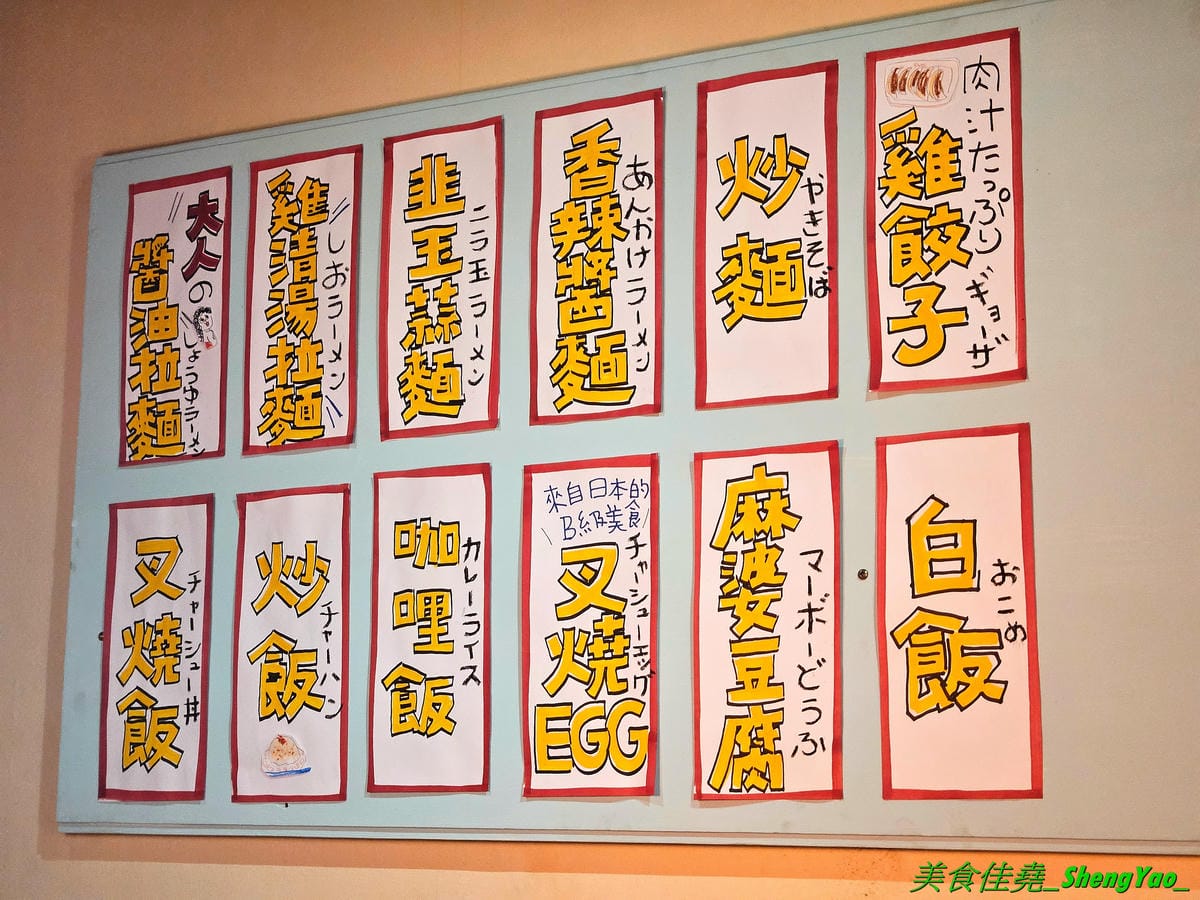 大人の
醬油拉麵
しょうゆラーメン
雞清湯拉麵
しおラーメン
韭玉蒜麵
ニラ玉ラーメン
香辣醬麵
あんかけラーメン
炒麵
やきそば
肉汁たっぷりギョーザ
雞餃子
叉燒飯
チャーシュー丼
炒飯
チャーハン
咖哩飯
カレーライス
來自日本的
B級美食
叉燒EGG
チャーシューエッグ
麻婆豆腐
マーボーどうふ
白飯
おこめ
美食佳堯_ShengYao_